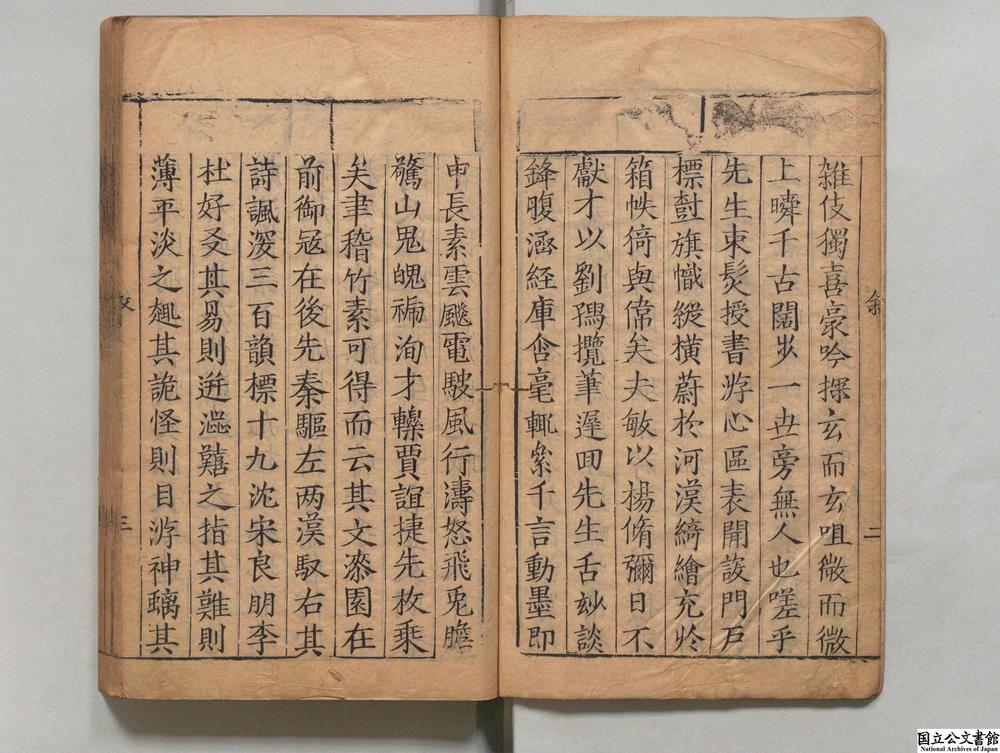 雜伎獨喜豪吟探玄而玄咀微而微
上瞬千古闊步一世旁無人也嗟乎
先生束髮授書游心區表開設門戶
標封旗幟縱橫蔚於河漢綺繪充於
箱帙倚與偉矣夫敏以楊脩彌日不
獻才以劉攬筆遲回先生舌妙談
鋒腹涵經庫含毫輒纍千言動墨即
申長素雲飈電駛風行濤怒飛兎膽
驚山鬼魄褫洵才轢賈誼捷先枚乘
矣聿稽竹素可得而云其文漆園在
前御寇在後先秦驅左两漢馭右其
詩諷深三百韻標十九沈宋良朋李
杜好友其易則逬澁囏之指其難則
薄平淡之趣其詭怪則目游神瞝其
叙
二
三
国立公文書館
National Archives of Japan